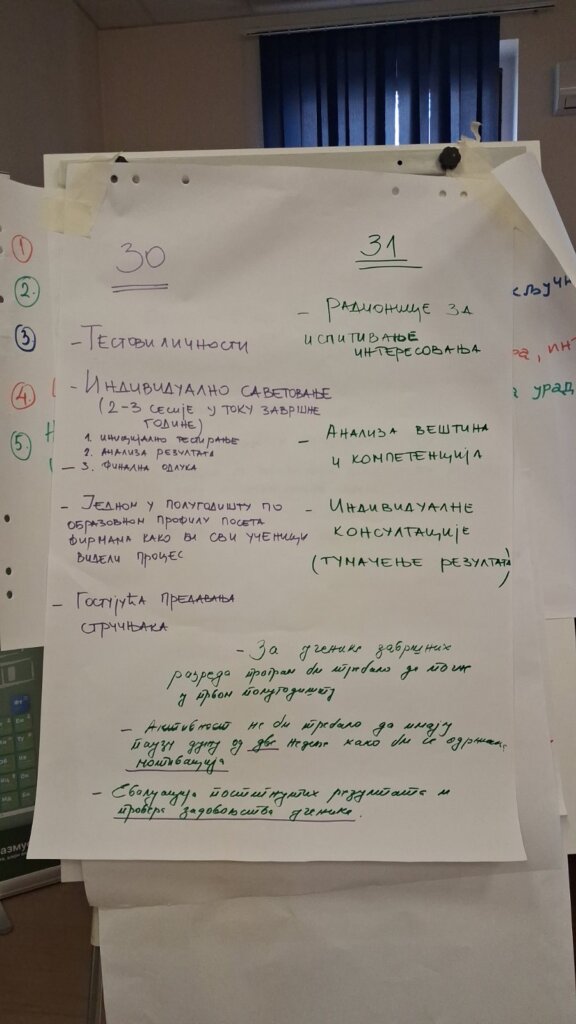 30
– ТЕСТОВИ ЛИЧНОСТИ
– ИНДИВИДУАЛНО САВЕТОВАЊЕ
(2-3 СЕСИЈЕ У ТОКУ ЗАВРШНЕ
ГОДИНЕ)
1. ИНИЦИЈАЛНО ТЕСТИРАЊЕ
2. АНАЛИЗА РЕЗУЛТАТА
– 3. ФИНАЛНА ОДЛУКА
– ЈЕДНОМ У ПОЛУГОДИШТУ ПО
ОБРАЗОВНОМ ПРОФИЛУ ПОСЕТА
ФИРМАМА КАКО БИ СВИ УЧЕНИЦИ
ВИДЕЛИ ПРОЦЕС
– ГОСТУЈУЋА ПРЕДАВАЊА
СТРУЧЊАКА
31
– РАДИОНИЦЕ ЗА
ИСПИТИВАЊЕ
ИНТЕРЕСОВАЊА
– АНАЛИЗА ВЕШТИНА
И КОМПЕТЕНЦИЈА
– ИНДИВИДУАЛНЕ
КОНСУЛТАЦИЈЕ
(ТУМАЧЕЊЕ РЕЗУЛТАТА)
– За ученике завршних
разреда програм би требало да почне
у првом полугодишту
– Активност не би требало да имају
паузу дужу од две недеље како би се одржала
мотивација
– Евалуација постигнутих резултата и
провера задовољства ученика.
1
2.
3.
4.
5.
КЉУЧН
РА, ИНТ
УРАД